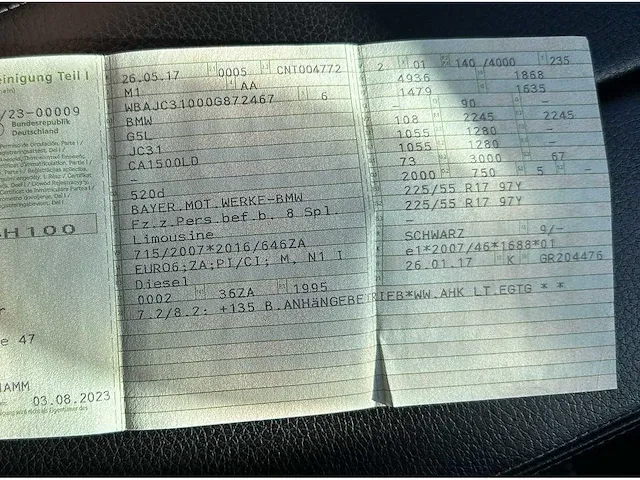 einigung Teil I
/23-00009
Bundesrepublik
Deutschland
H100
e 47
AMM
03.08.2023
26.05.17 0005 CNT004772
M1 AA
WBAJC31000G872467 6
BMW
G5L
JC31
CA1500LD
520d
BAYER.MOT.WERKE-BMW
Fz.z.Pers.bef.b. 8 Spl.
Limousine
715/2007*2016/646ZA
EURO6;ZA;PI/CI; M, N1 I
Diesel
0002 36ZA 1995
7.2/8.2: +135 B.ANHäNGEBETRIEB*WW.AHK LT.EGTG * *
2 01 140 /4000 235
4936 1868
1479 1635
- 90 -
108 2245 2245
1055 1280 -
1055 1280 -
73 3000 67
2000 750 5 -
225/55 R17 97Y
225/55 R17 97Y
-
SCHWARZ 9/-
e1*2007/46*1688*01
26.01.17 K GR204476